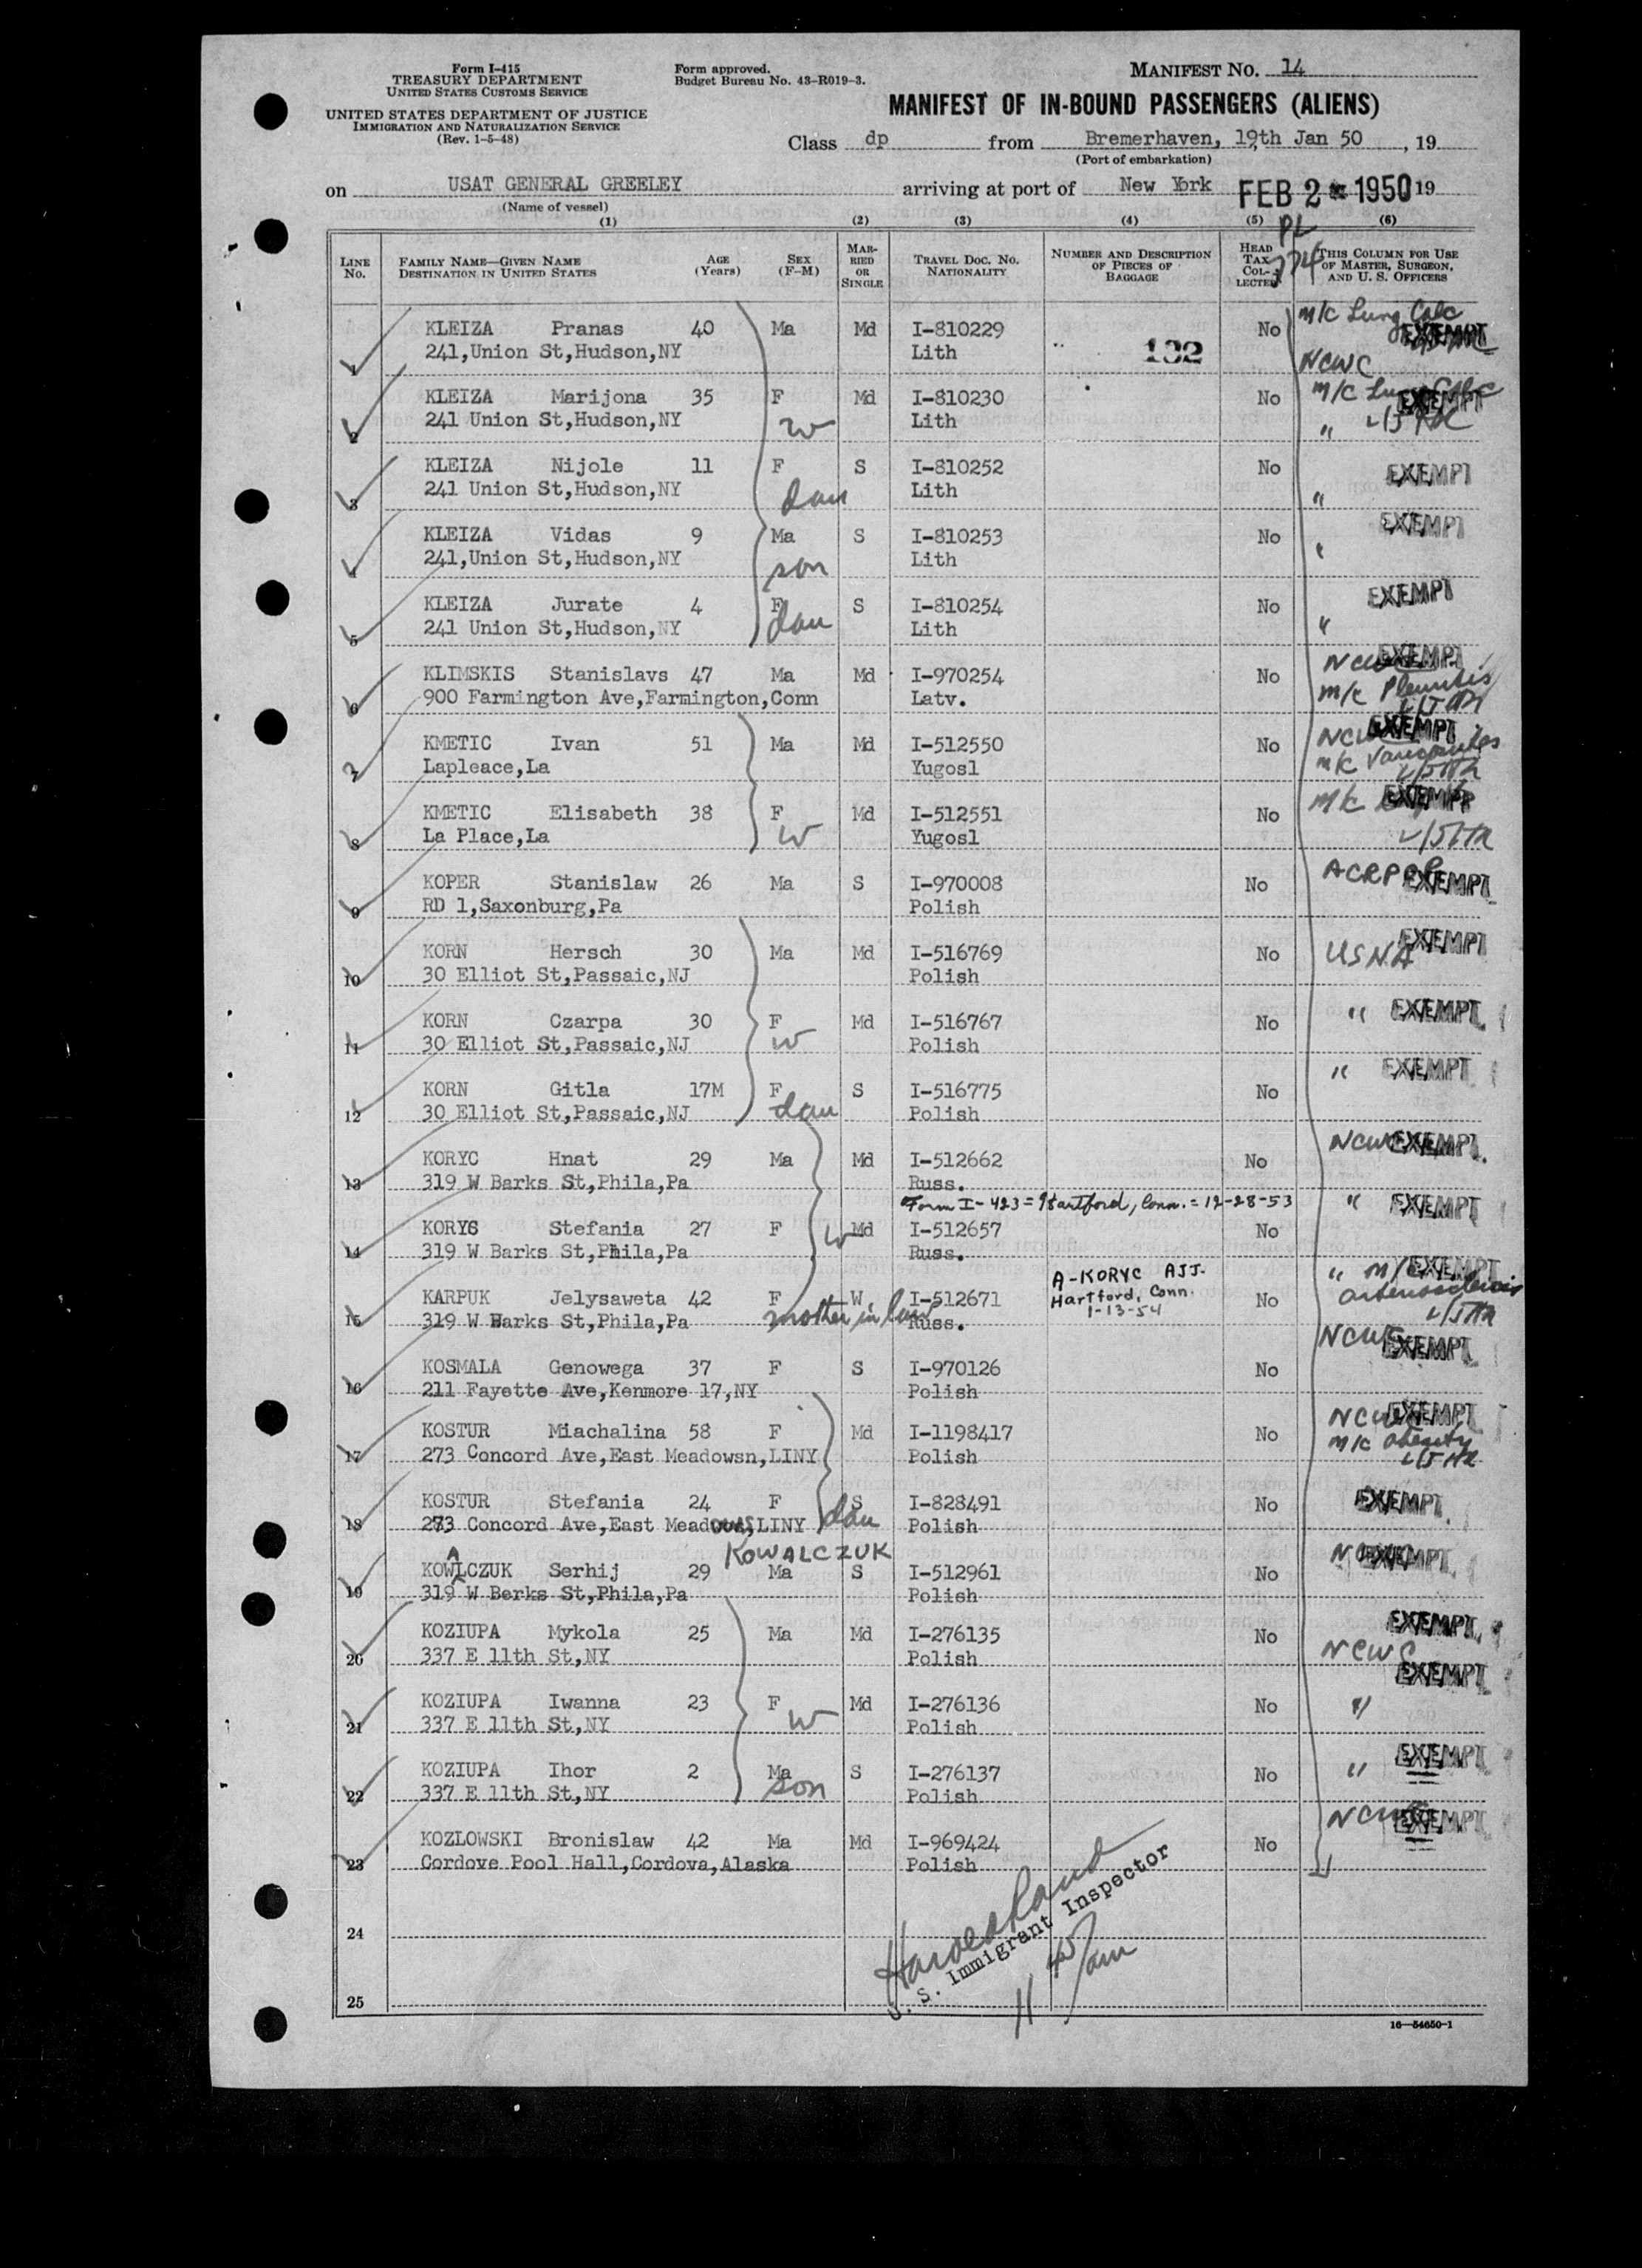 Form I-415
TREASURY DEPARTMENT
UNITED STATES CUSTOMS SERVICE
UNITED STATES DEPARTMENT OF JUSTICE
IMMIGRATION AND NATURALIZATION SERVICE
(Rev. 1-5-48)
Form approved.
Budget Bureau No. 43-R019-3.
MANIFEST NO. 14
MANIFEST OF IN-BOUND PASSENGERS (ALIENS)
Class dp from Bremerhaven, 19th Jan 50, 19
(Port of embarkation)
on USAT GENERAL GREELEY arriving at port of New York FEB 2 - 1950 19
(Name of vessel)
(1) (2) (3) (4) (5) (6)
LINE NO. FAMILY NAME—GIVEN NAME DESTINATION IN UNITED STATES AGE (Years) SEX (F-M) MARRIED OR SINGLE TRAVEL DOC. NO. NATIONALITY NUMBER AND DESCRIPTION OF PIECES OF BAGGAGE HEAD TAX COLLECTED THIS COLUMN FOR USE OF MASTER, SURGEON, AND U. S. OFFICERS
KLEIZA Pranas 40 Ma Md I-810229 No m/c Lung Calc EXEMPT
1 241,Union St,Hudson,NY Lith 132 NCWC
KLEIZA Marijona 35 F Md I-810230 No m/c Lung Calc EXEMPT
2 241 Union St,Hudson,NY w Lith "
KLEIZA Nijole 11 F S I-810252 No EXEMPT
3 241 Union St,Hudson,NY dau Lith "
KLEIZA Vidas 9 Ma S I-810253 No EXEMPT
4 241,Union St,Hudson,NY son Lith "
KLEIZA Jurate 4 F S I-810254 No EXEMPT
5 241 Union St,Hudson,NY dau Lith "
KLIMSKIS Stanislavs 47 Ma Md I-970254 No NCWC EXEMPT
6 900 Farmington Ave,Farmington,Conn Latv. m/c Pleuritis
KMETIC Ivan 51 Ma Md I-512550 No NCWC EXEMPT
7 Lapleace,La Yugosl m/c
KMETIC Elisabeth 38 F Md I-512551 No m/c EXEMPT
8 La Place,La w Yugosl
KOPER Stanislaw 26 Ma S I-970008 No EXEMPT
9 RD 1,Saxonburg,Pa Polish
KORN Hersch 30 Ma Md I-516769 No USNA EXEMPT
10 30 Elliot St,Passaic,NJ Polish
KORN Czarpa 30 F Md I-516767 No " EXEMPT
11 30 Elliot St,Passaic,NJ w Polish
KORN Gitla 17M F S I-516775 No " EXEMPT
12 30 Elliot St,Passaic,NJ dau Polish
KORYC Hnat 29 Ma Md I-512662 No NCWC EXEMPT
13 319 W Barks St,Phila,Pa Russ.
Form I-423=Hartford, Conn.=12-28-53
KORYC Stefania 27 F w Md I-512657 No " EXEMPT
14 319 W Barks St,Phila,Pa Russ.
A-KORYC AJJ.
Hartford, Conn.
1-13-54
KARPUK Jelysaweta 42 F W I-512671 No " m/c EXEMPT
15 319 W Barks St,Phila,Pa mother in law Russ. arteriosclerosis
KOSMALA Genowega 37 F S I-970126 No NCWC EXEMPT
16 211 Fayette Ave,Kenmore 17,NY Polish
KOSTUR Miachalina 58 F Md I-1198417 No NCWC EXEMPT
17 273 Concord Ave,East Meadowsn,LINY Polish m/c obesity
KOSTUR Stefania 24 F S I-828491 No EXEMPT
18 273 Concord Ave,East Meadows,LINY dau Polish
KOWALCZUK
KOWALCZUK Serhij 29 Ma S I-512961 No NCWC EXEMPT
19 319 W Berks St,Phila,Pa Polish
KOZIUPA Mykola 25 Ma Md I-276135 No EXEMPT
20 337 E 11th St,NY Polish NCWC
KOZIUPA Iwanna 23 F Md I-276136 No " EXEMPT
21 337 E 11th St,NY w Polish
KOZIUPA Ihor 2 Ma S I-276137 No " EXEMPT
22 337 E 11th St,NY son Polish
KOZLOWSKI Bronislaw 42 Ma Md I-969424 No NCWC EXEMPT
23 Cordove Pool Hall,Cordova,Alaska Polish
24
U. S. Immigrant Inspector
11 45 am
25
16—54650-1